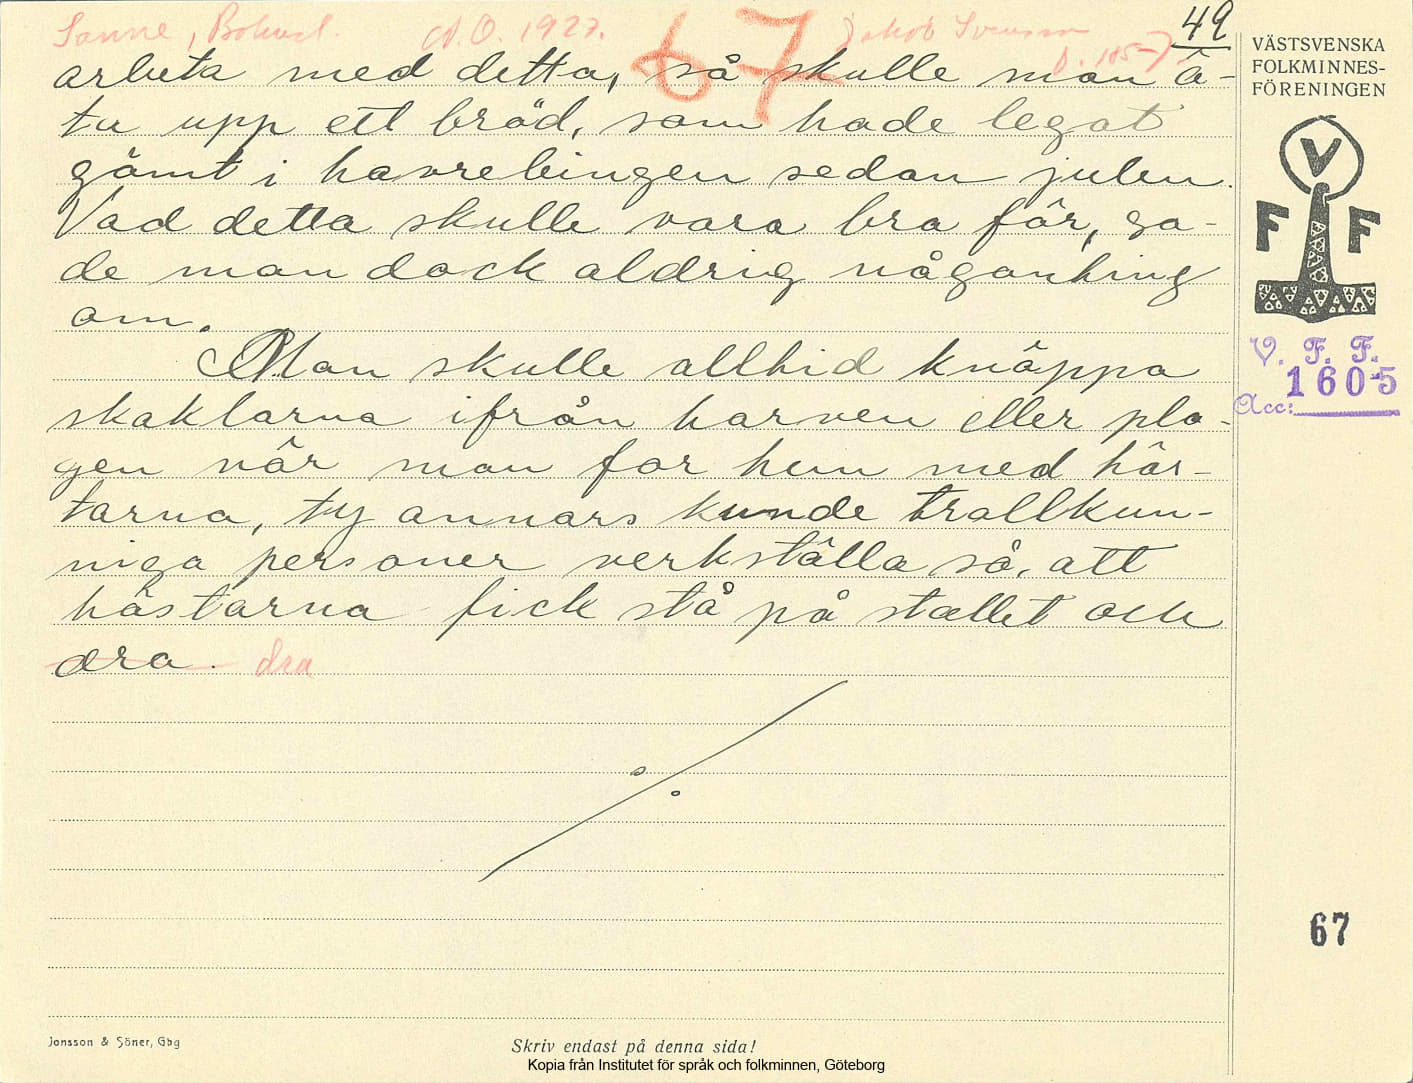 Sanne, Bohusl. A.O. 1927. Jakob Svensson
f. 1857
49
67
arbeta med detta, så skulle man ä-
ta upp ett bröd, som hade legat
gömt i havrebingen sedan julen.
Vad detta skulle vara bra för, sa-
de man dock aldrig någonting
om.
Man skulle alltid knäppa
skaklarna ifrån harven eller plo-
gen när man for hem med häs-
tarna, ty annars kunde trollkun-
niga personer verkställa så, att
hästarna fick stå på stallet och
dra. dra
VÄSTSVENSKA
FOLKMINNES-
FÖRENINGEN
V
F F
V. F. F.
1605
Acc:
67
Jonsson & Söner, Gbg
Skriv endast på denna sida!
Kopia från Institutet för språk och folkminnen, Göteborg